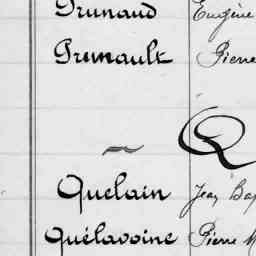 Prunaud Eugène
Premault Pierre
Q
Quelain Jean Bap
Quélavoine Pierre M